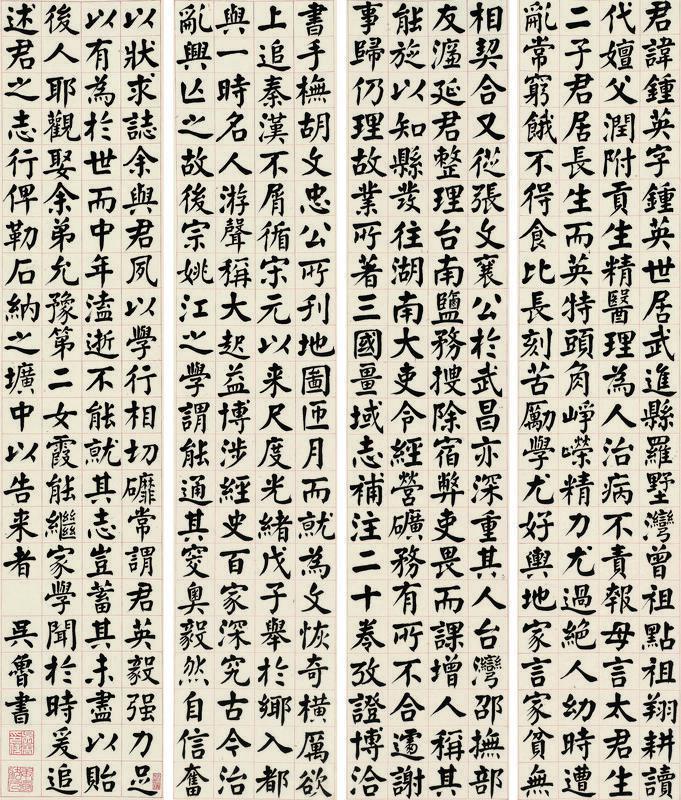 君諱鍾英字鍾英世居武進縣羅墅灣曾祖點祖翔耕讀
代嬗父潤附貢生精醫理為人治病不責報母言太君生
二子君居長生而英特頭角崢嶸精力尤過絕人幼時遭
亂常窮餓不得食比長刻苦勵學尤好輿地家言家貧無
相契合又從張文襄公於武昌亦深重其人台灣邵撫部
友濂延君整理台南鹽務搜除宿弊吏畏而課增人稱其
能施以知縣發往湖南大吏令經營礦務有所不合遽謝
事歸仍理故業所著三國疆域志補注二十卷攷證博洽
書手橅胡文忠公所刊地圖匝月而就為文恢奇橫厲欲
上追秦漢不屑循宋元以来尺度光緒戊子舉於鄉入都
與一時名人游聲稱大起益博涉經史百家深究古今治
亂興亾之故後宗姚江之學謂能通其窔奧毅然自信奮
以狀求誌余與君夙以學行相切礳常謂君英毅强力足
以有為於世而中年溘逝不能就其志豈蓄其未盡以貽
後人耶觀娶余弟允豫第二女霞能繼家學聞於時爰追
述君之志行俾勒石納之壙中以告来者 吳魯書